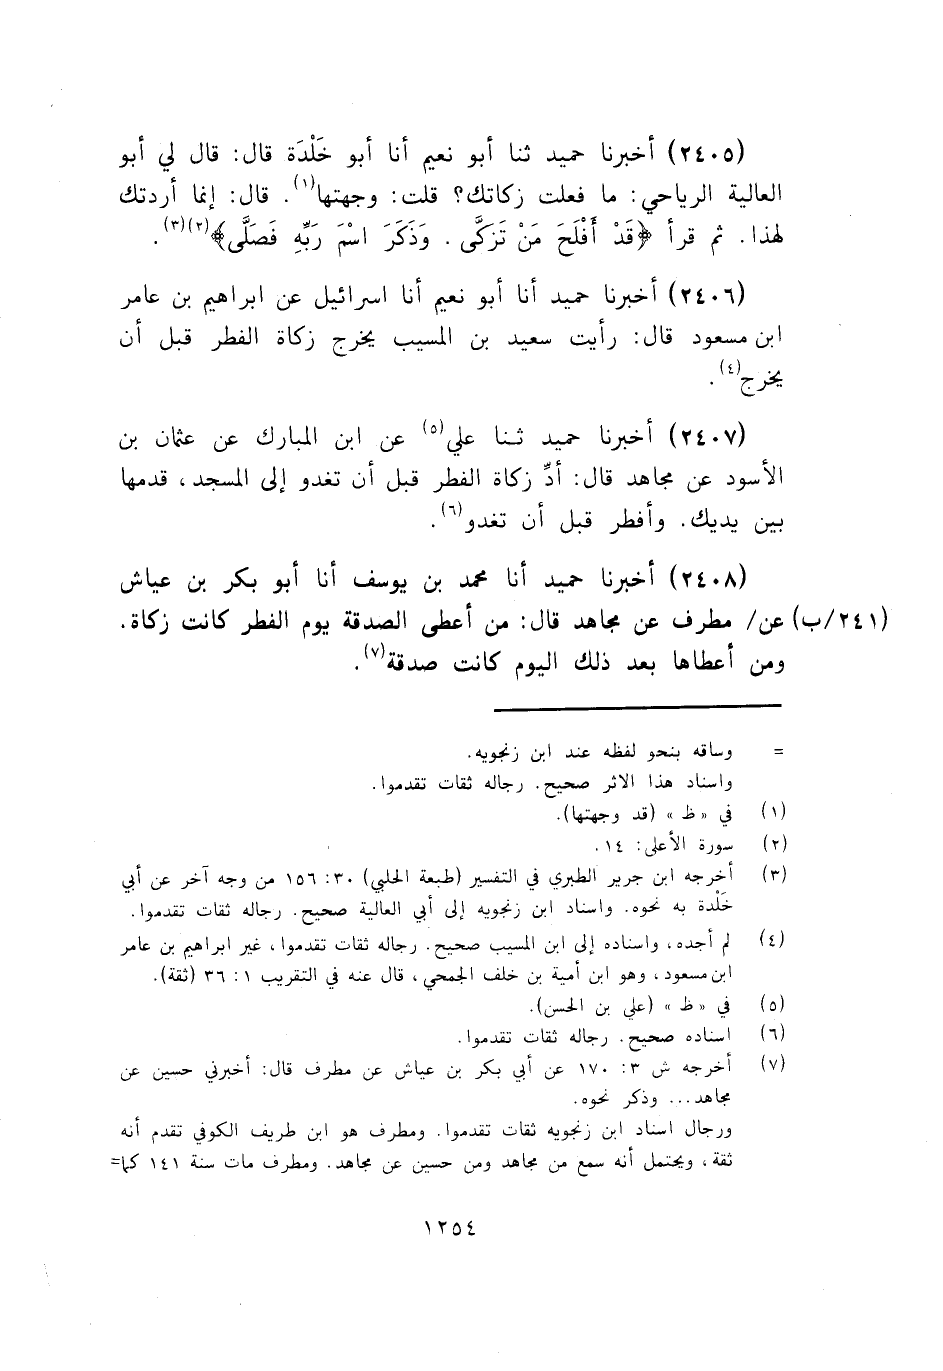 (٢٤٠٥) أخبرنا حميد ثنا أبو نعيم أنا أبو خَلْدَة قال: قال لي أبو
العالية الرياحي: ما فعلت زكاتك؟ قلت: وجهتها(١). قال: إنما أردتك
لهذا. ثم قرأ ﴿قَدْ أَفْلَحَ مَنْ تَزَكَّى. وَذَكَرَ اسْمَ رَبِّهِ فَصَلَّى﴾(٢)(٣).
(٢٤٠٦) أخبرنا حميد أنا أبو نعيم أنا اسرائيل عن ابراهيم بن عامر
ابن مسعود قال: رأيت سعيد بن المسيب يخرج زكاة الفطر قبل أن
يخرج(٤).
(٢٤٠٧) أخبرنا حميد ثنا علي(٥) عن ابن المبارك عن عثمان بن
الأسود عن مجاهد قال: أدِّ زكاة الفطر قبل أن تغدو إلى المسجد، قدمها
بين يديك. وأفطر قبل أن تغدو(٦).
(٢٤٠٨) أخبرنا حميد أنا محمد بن يوسف أنا أبو بكر بن عياش
(٢٤١/ب) عن/ مطرف عن مجاهد قال: من أعطى الصدقة يوم الفطر كانت زكاة.
ومن أعطاها بعد ذلك اليوم كانت صدقة(٧).
= وساقه بنحو لفظه عند ابن زنجويه.
واسناد هذا الاثر صحيح. رجاله ثقات تقدموا.
(١) في «ظ» (قد وجهتها).
(٢) سورة الأعلى: ١٤.
(٣) أخرجه ابن جرير الطبري في التفسير (طبعة الحلبي) ٣٠: ١٥٦ من وجه آخر عن أبي
خَلْدة به نحوه. واسناد ابن زنجويه إلى أبي العالية صحيح. رجاله ثقات تقدموا.
(٤) لم أجده، واسناده إلى ابن المسيب صحيح. رجاله ثقات تقدموا، غير ابراهيم بن عامر
ابن مسعود، وهو ابن أمية بن خلف الجمحي، قال عنه في التقريب ١: ٣٦ (ثقة).
(٥) في «ظ» (علي بن الحسن).
(٦) اسناده صحيح. رجاله ثقات تقدموا.
(٧) أخرجه ش ٣: ١٧٠ عن أبي بكر بن عياش عن مطرف قال: أخبرني حسين عن
مجاهد... وذكر نحوه.
ورجال اسناد ابن زنجويه ثقات تقدموا. ومطرف هو ابن طريف الكوفي تقدم أنه
ثقة، ويحتمل أنه سمع من مجاهد ومن حسين عن مجاهد. ومطرف مات سنة ١٤١ كما=
١٢٥٤